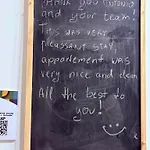 THANK YOU ANTONIO
and your team!
THIS WAS VERY
pleassant STAY,
appartement WAS
very nice and clean
All the best to
you!